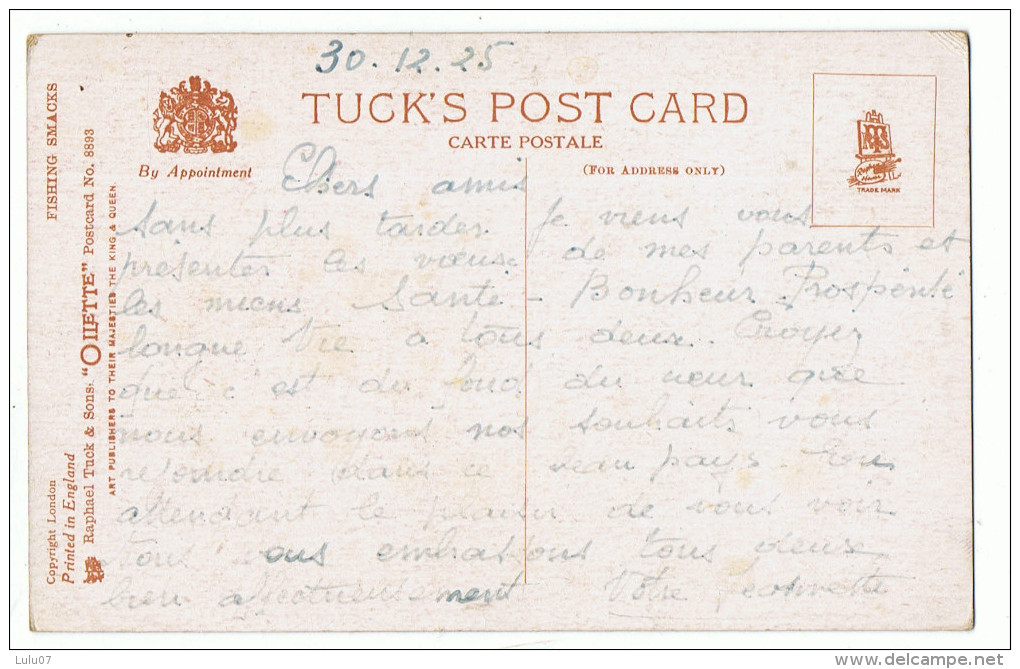 30.12.25
TUCK'S POST CARD
CARTE POSTALE
By Appointment
(FOR ADDRESS ONLY)
TRADE MARK
FISHING SMACKS
Raphael Tuck & Sons' "OILETTE" Postcard No. 8893
ART PUBLISHERS TO THEIR MAJESTIES THE KING & QUEEN.
Copyright London
Printed in England
Chers amis
Sans plus tarder je viens vous
présenter les vœux de mes parents et
les miens Santé - Bonheur Prospérité
longue Vie a tous deux. Croyez
que c'est du fond du cœur que
nous envoyons nos souhaits vous
rejoindre dans ce beau pays. En
attendant le plaisir de vous voir
tous vous embrassons tous deux
bien affectueusement Votre
Lulu07
www.delcampe.net